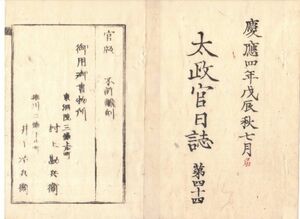 慶應四年戊辰秋七月
太政官日誌
第四十四
官版 不許翻刻
御用御書物所
東洞院三條上ル町
村上勘兵衛
井上治兵衛